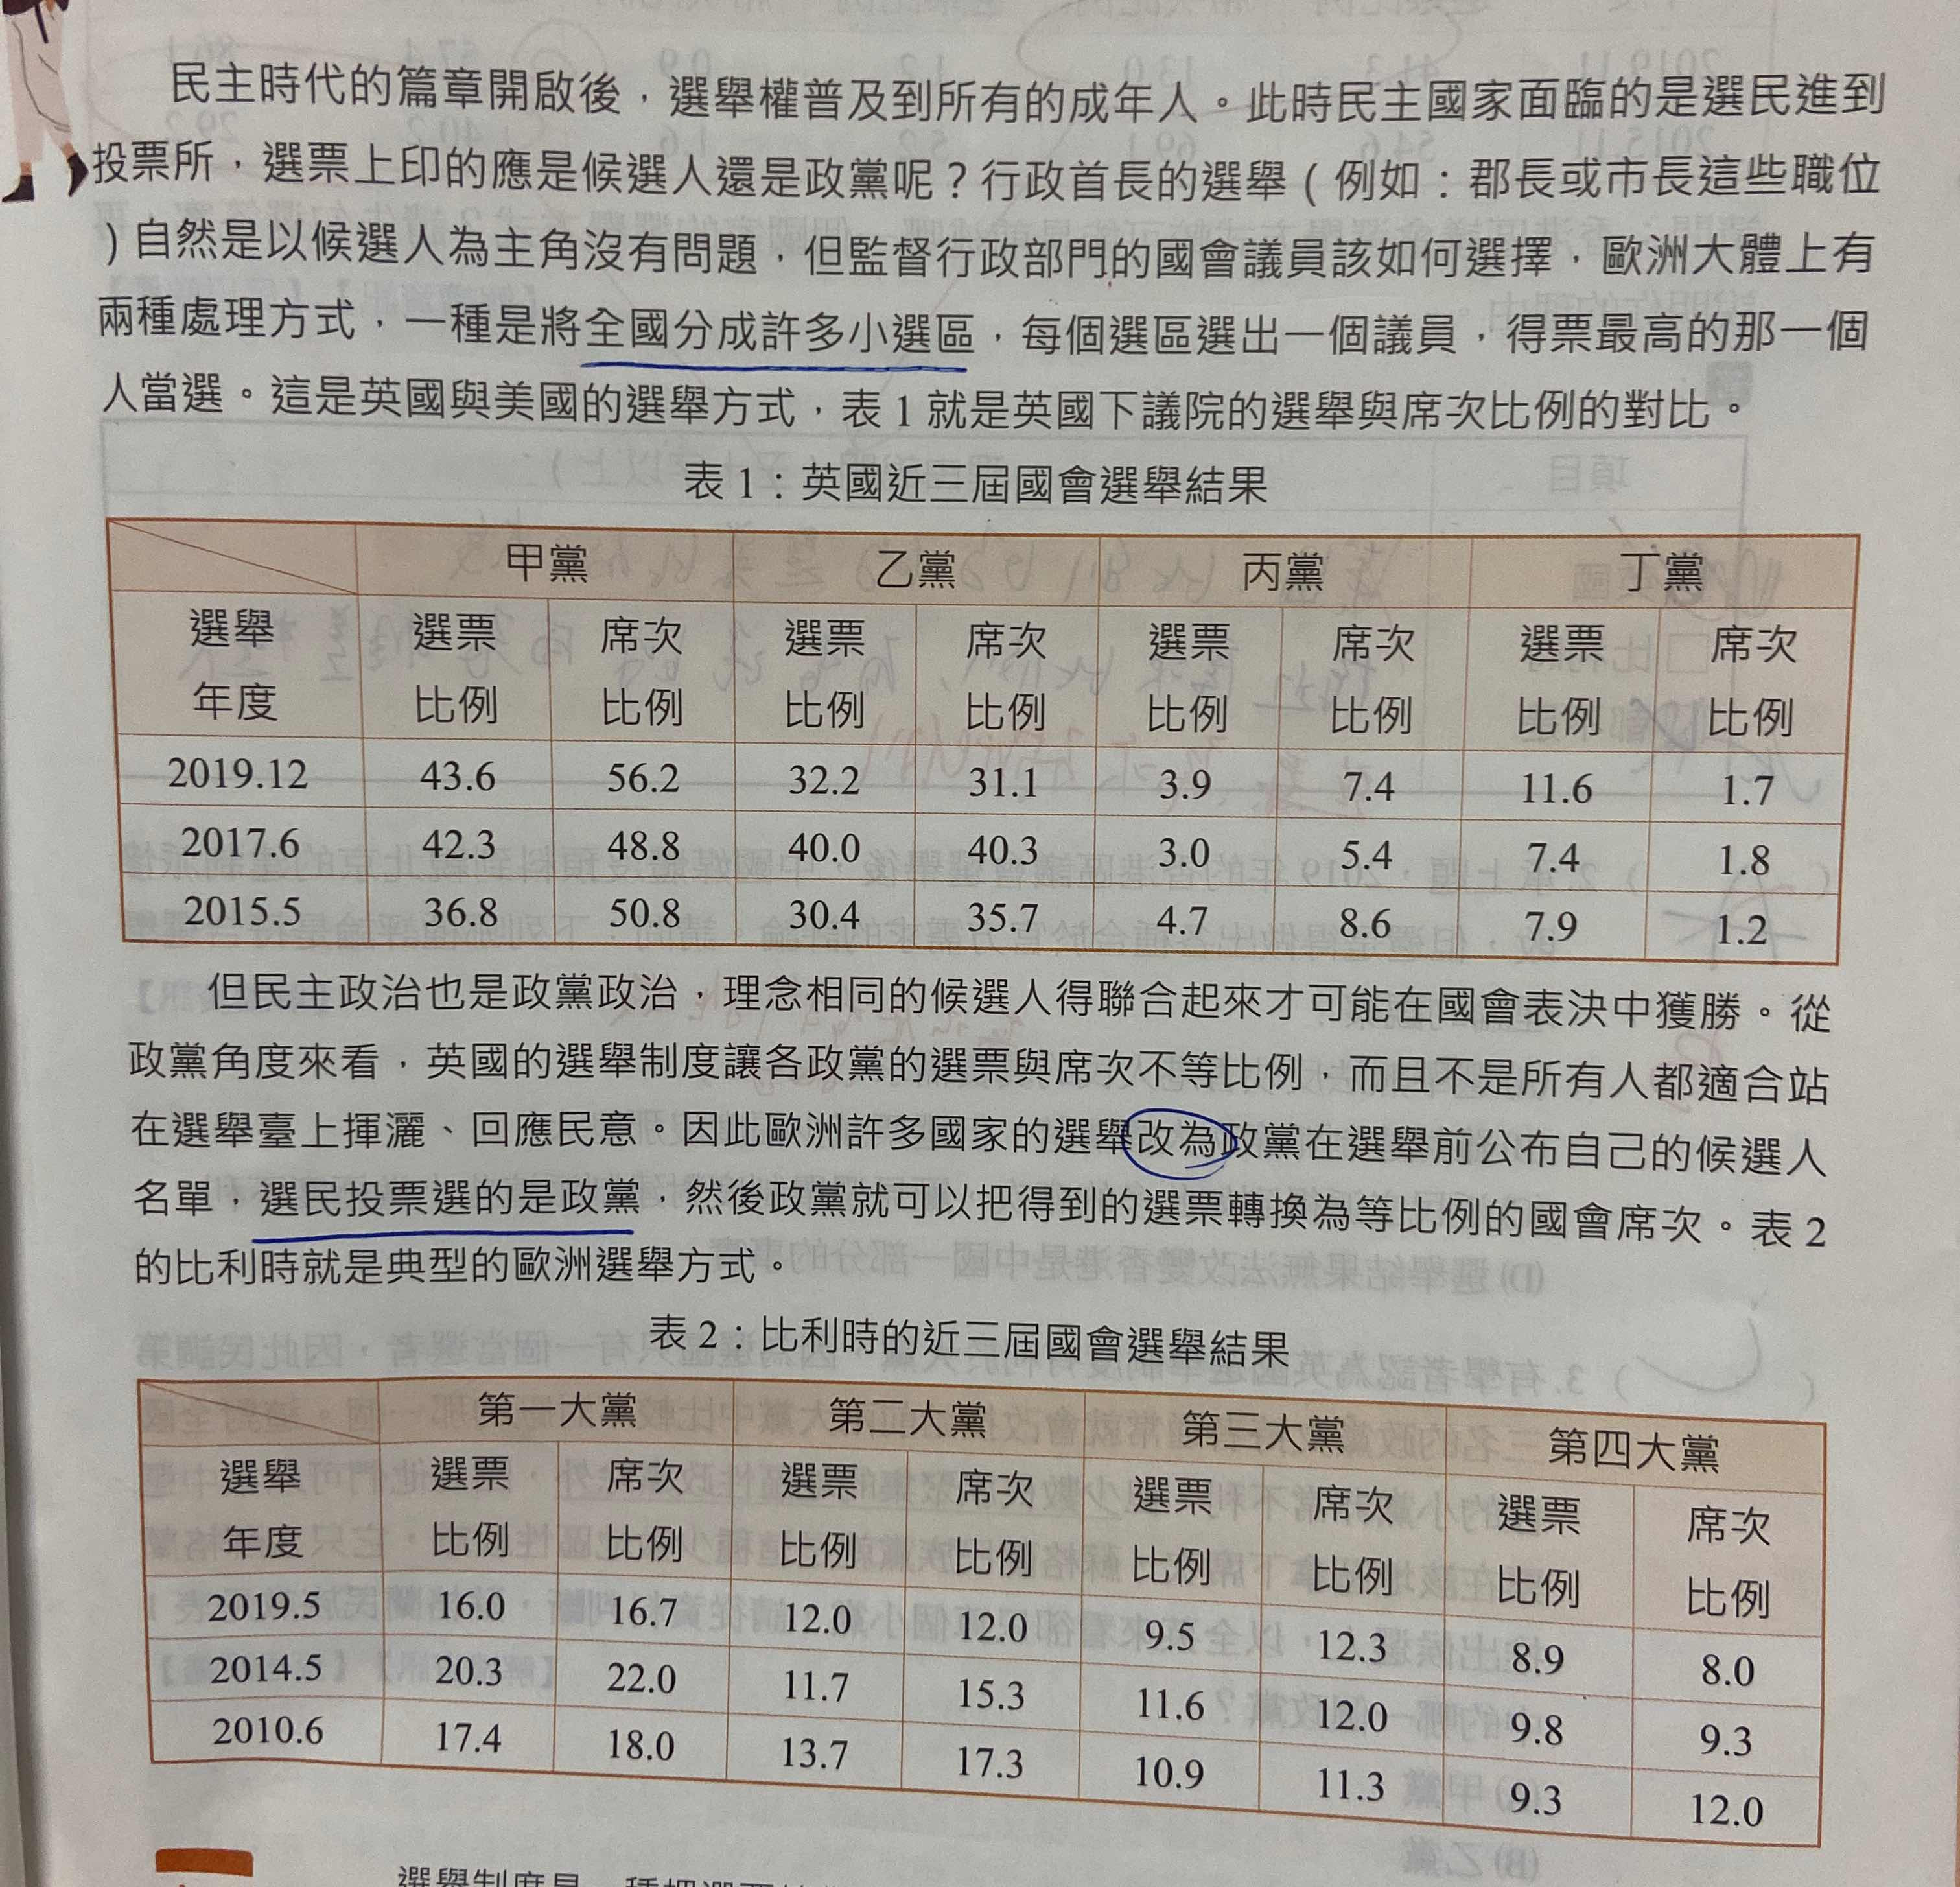 民主時代的篇章開啟後，選舉權普及到所有的成年人。此時民主國家面臨的是選民進到
投票所，選票上印的應是候選人還是政黨呢？行政首長的選舉（例如：郡長或市長這些職位
）自然是以候選人為主角沒有問題，但監督行政部門的國會議員該如何選擇，歐洲大體上有
兩種處理方式，一種是將全國分成許多小選區，每個選區選出一個議員，得票最高的那一個
人當選。這是英國與美國的選舉方式，表 1 就是英國下議院的選舉與席次比例的對比。
表 1：英國近三屆國會選舉結果
甲黨 乙黨 丙黨 丁黨
選舉 選票 席次 選票 席次 選票 席次 選票 席次
年度 比例 比例 比例 比例 比例 比例 比例 比例
2019.12 43.6 56.2 32.2 31.1 3.9 7.4 11.6 1.7
2017.6 42.3 48.8 40.0 40.3 3.0 5.4 7.4 1.8
2015.5 36.8 50.8 30.4 35.7 4.7 8.6 7.9 1.2
但民主政治也是政黨政治，理念相同的候選人得聯合起來才可能在國會表決中獲勝。從
政黨角度來看，英國的選舉制度讓各政黨的選票與席次不等比例，而且不是所有人都適合站
在選舉臺上揮灑、回應民意。因此歐洲許多國家的選舉改為政黨在選舉前公布自己的候選人
名單，選民投票選的是政黨，然後政黨就可以把得到的選票轉換為等比例的國會席次。表 2
的比利時就是典型的歐洲選舉方式。
表 2：比利時的近三屆國會選舉結果
第一大黨 第二大黨 第三大黨 第四大黨
選舉 選票 席次 選票 席次 選票 席次 選票 席次
年度 比例 比例 比例 比例 比例 比例 比例 比例
2019.5 16.0 16.7 12.0 12.0 9.5 12.3 8.9 8.0
2014.5 20.3 22.0 11.7 15.3 11.6 12.0 9.8 9.3
2010.6 17.4 18.0 13.7 17.3 10.9 11.3 9.3 12.0
選舉制度是一種把選票